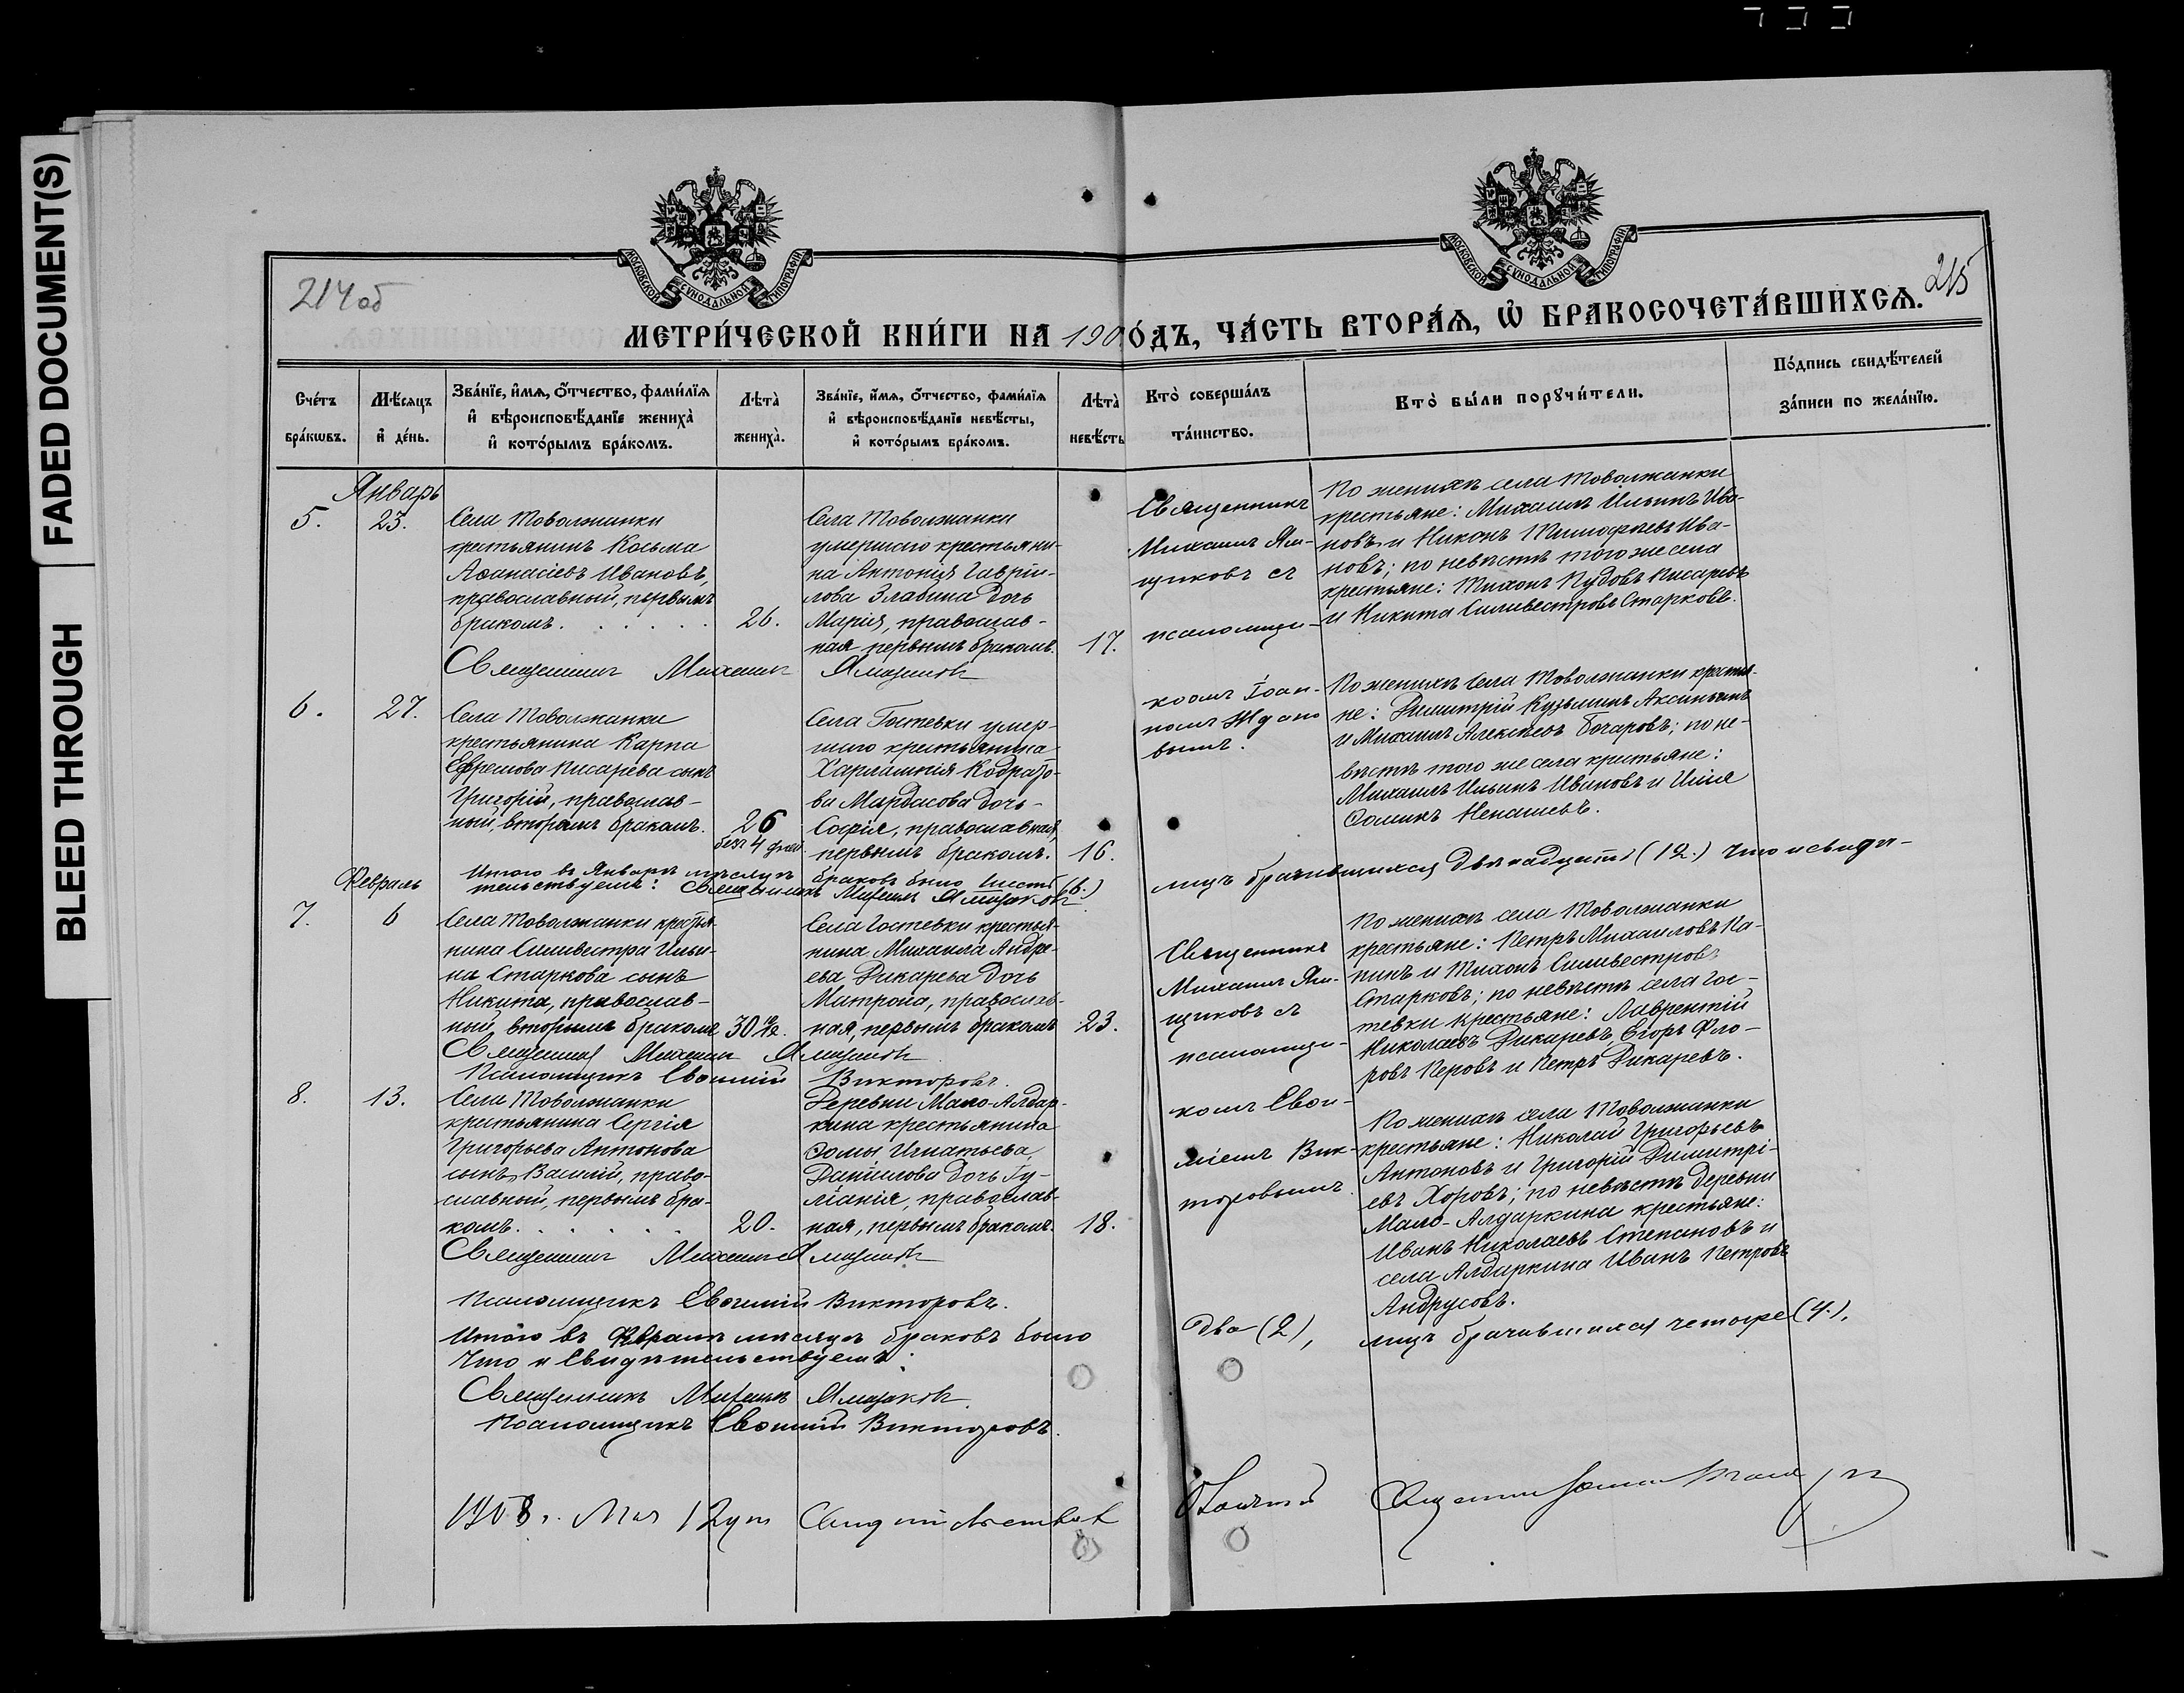 FADED DOCUMENT(S)
BLEED THROUGH
МОСКОВСКОЙ СѴНОДАЛЬНОЙ ТИПОГРАФІИ
МОСКОВСКОЙ СѴНОДАЛЬНОЙ ТИПОГРАФІИ
214 об
215
МЕТРИ́ЧЕСКОЙ КНИ́ГИ НА 190 ОДЪ, ЧА́СТЬ ВТОРА́Ѧ, Ѽ БРАКОСОЧЕТА́ВШИХСѦ.
Сче́тъ бра́кѡвъ.
Мѣ́сѧцъ и де́нь.
Зва́нїе, и́мѧ, ѻ́тчество, фами́лїѧ и вѣроисповѣ́данїе жениха̀ и кото́рымъ бра́комъ.
Лѣта̀ жениха̀.
Зва́нїе, и́мѧ, ѻ́тчество, фами́лїѧ и вѣроисповѣ́данїе невѣ́сты, и кото́рымъ бра́комъ.
Лѣта̀ невѣ́сты
Кто̀ соверша́лъ та́инство.
Кто̀ бы́ли порꙋчи́тели.
По́дпись свидѣ́телей за́писи по жела́нїю.
Январь
5.
23.
Села Товолжанки
крестьянинъ Косьма
Аѳанасіевъ Ивановъ,
православный, первымъ
бракомъ. . . . . .
26.
Села Товолжанки
умершаго крестьяни-
на Антонія Гаврiи-
лова Злабина дочь
Марія, православ-
ная первымъ бракомъ.
17.
Священникъ Михаилъ Ямщиковъ
Священникъ
Михаилъ Ям-
щиковъ съ
псаломщи-
комъ Іоан-
номъ Ждано
вымъ.
По женихѣ села Товолжанки
крестьяне: Михаилъ Ильинъ Ива-
новъ и Никонъ Тимофѣевъ Ива-
новъ; по невѣстѣ того же села
крестьяне: Тихонъ Кудовъ Писаревъ
и Никита Силивестровъ Старковъ.
6.
27.
Села Товолжанки
крестьянина Карпа
Ефремова Писарева сынъ
Григорій, православ-
ный, вторымъ бракомъ.
26
безъ 4 дней.
Села Гостевки умер-
шаго крестьянина
Харлампія Кодрато-
ва Мардасова дочь-
Софія, православная,
первымъ бракомъ.
16.
По женихѣ села Товолжанки крестья-
не: Димитрій Кузьминъ Аксиньинъ
и Михаилъ Алексѣевъ Бочаровъ; по не-
вѣстѣ того же села крестьяне:
Михаилъ Ильинъ Ивановъ и Илія
Ѳоминъ Ненашевъ.
Итого въ Январѣ мѣсяцѣ браковъ было шесть (6.) лицъ брачившихся двѣнадцать (12.) Что и свидѣ-
тельствуемъ: Священникъ Михаилъ Ямщиковъ
Февраль
7.
6
Села Товолжанки крестья-
нина Силивестра Ильи-
на Старкова сынъ
Никита, православ-
ный, вторымъ бракомъ
Села Гостевки крестья-
нина Михаила Андре-
ева Дикарева дочь
Матрона, православ-
ная, первымъ бракомъ
23.
Священникъ Михаилъ Ямщиковъ
Псаломщикъ Евѳимій Викторовъ.
Священникъ
Михаилъ Ям-
щиковъ съ
псаломщи-
комъ Евѳи-
міемъ Вик-
торовымъ.
По женихѣ села Товолжанки
крестьяне: Петръ Михаиловъ Па-
нинъ и Тихонъ Силивестровъ
Старковъ; по невѣстѣ села Гос-
тевки крестьяне: Лаврентій
Николаевъ Дикаревъ, Егоръ Фло-
ровъ Перовъ и Петръ Дикаревъ.
8.
13.
Села Товолжанки
крестьянина Сергія
Григорьева Антонова
сынъ Василій, право-
славный, первымъ бра-
комъ. . . . . .
20.
Деревни Мало-Алдар-
кина крестьянина
Ѳомы Игнатьева
Данилова дочь Іу-
ліанія, православ-
ная, первымъ бракомъ.
18.
Священникъ Михаилъ Ямщиковъ
Псаломщикъ Евѳимій Викторовъ.
По женихѣ села Товолжанки
крестьяне: Николай Григорьевъ
Антоновъ и Григорій Димитрі-
евъ Хоровъ; по невѣстѣ деревни
Мало-Алдаркина крестьяне:
Иванъ Николаевъ Степановъ и
села Алдаркина Иванъ Петровъ
Андрусовъ.
Итого въ Февралѣ мѣсяцѣ браковъ было два (2), лицъ брачившихся четыре (4).
Что и Свидѣтельствуемъ:
Священникъ Михаилъ Ямщиковъ.
Псаломщикъ Евѳимій Викторовъ.
1908 г. Мая 12 дня